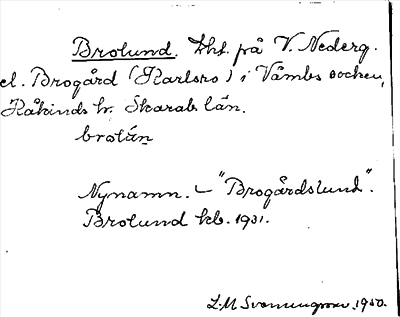 Brolund. lht. på V. Nederg.
el. Brogård (Karlsro) i Våmbs socken,
Kåkinds hr. Skarab. län.
brolún
Nynamn. – "Brogårdslund".
Brolund kb. 1931.
L. M. Svennungsson. 1950.